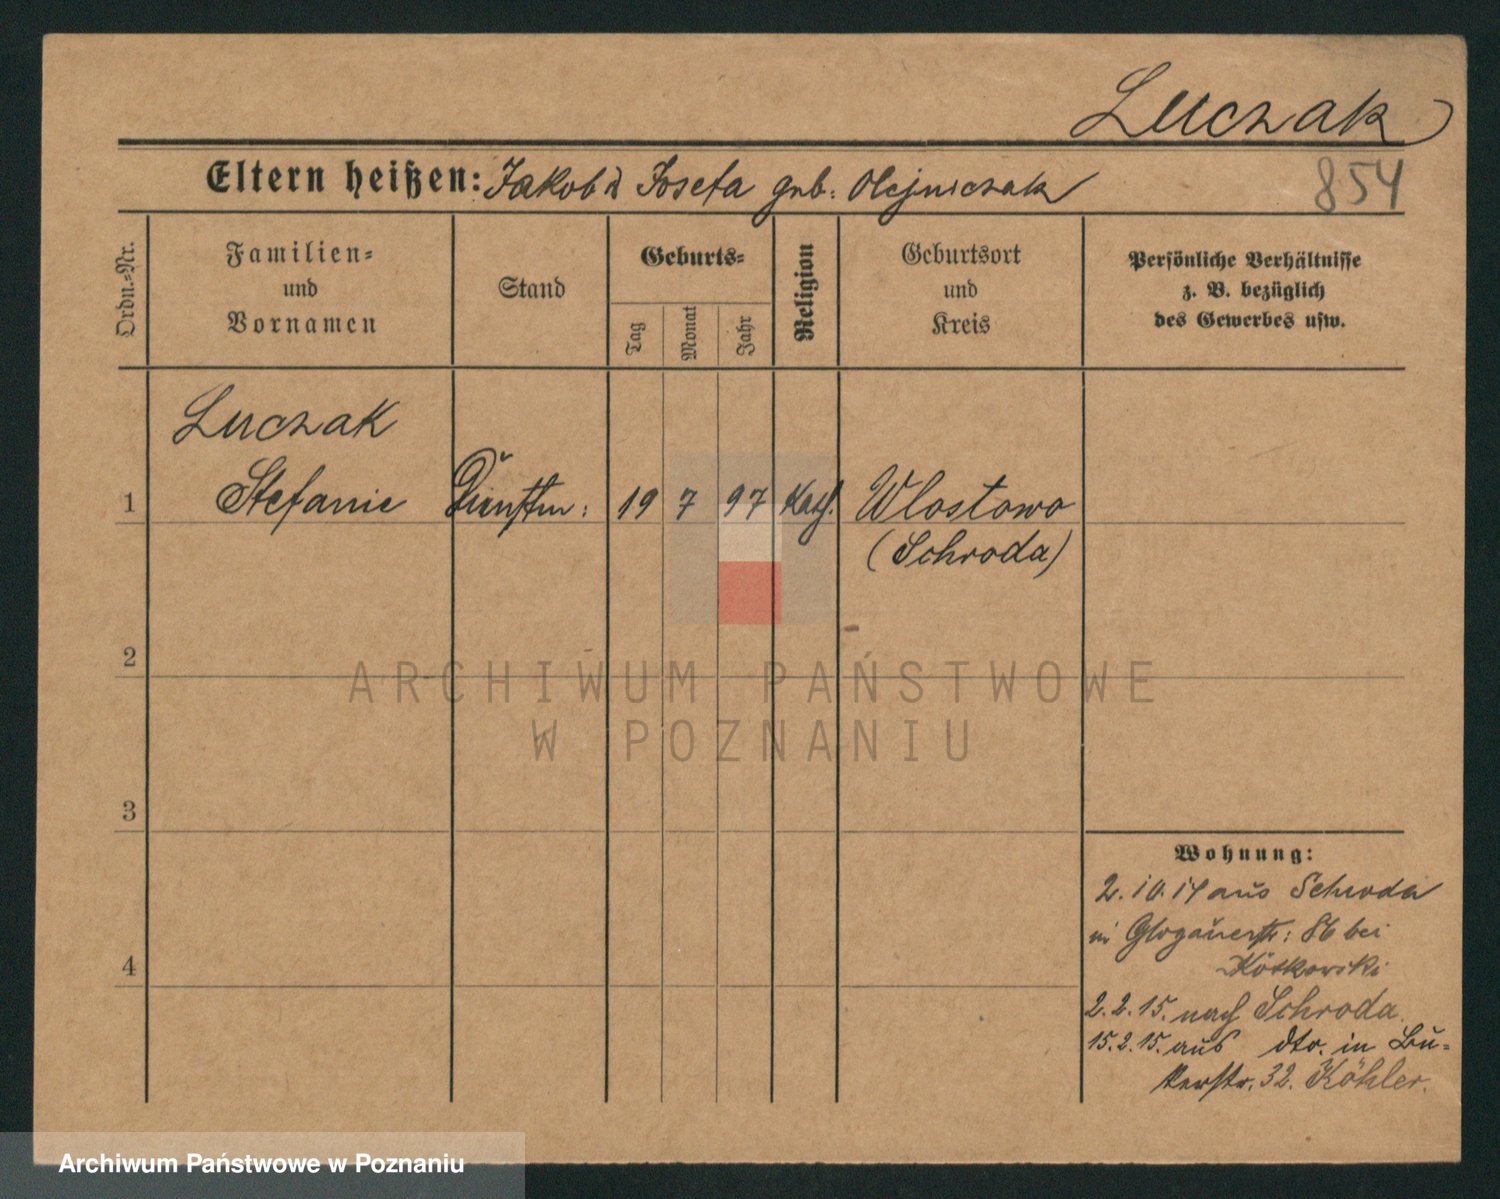 Luczak
Eltern heißen: Jakob u Josefa geb. Olejniczak
854
Ordn.=Nr.
Familien=
und
Vornamen
Stand
Geburts=
Tag
Monat
Jahr
Religion
Geburtsort
und
Kreis
Persönliche Verhältnisse
z. B. bezüglich
des Gewerbes usw.
Luczak
1 Stefanie Dienstm: 19 7 97 Kath. Wlostowo
(Schroda)
2
ARCHIWUM PAŃSTWOWE
W POZNANIU
3
Wohnung:
2. 10. 14 aus Schroda
in Glogauerstr: 86 bei
4
2. 2. 15. nach Schroda.
15. 2. 15. aus dto. in Bu=
kerstr. 32. Köhler.
Archiwum Państwowe w Poznaniu